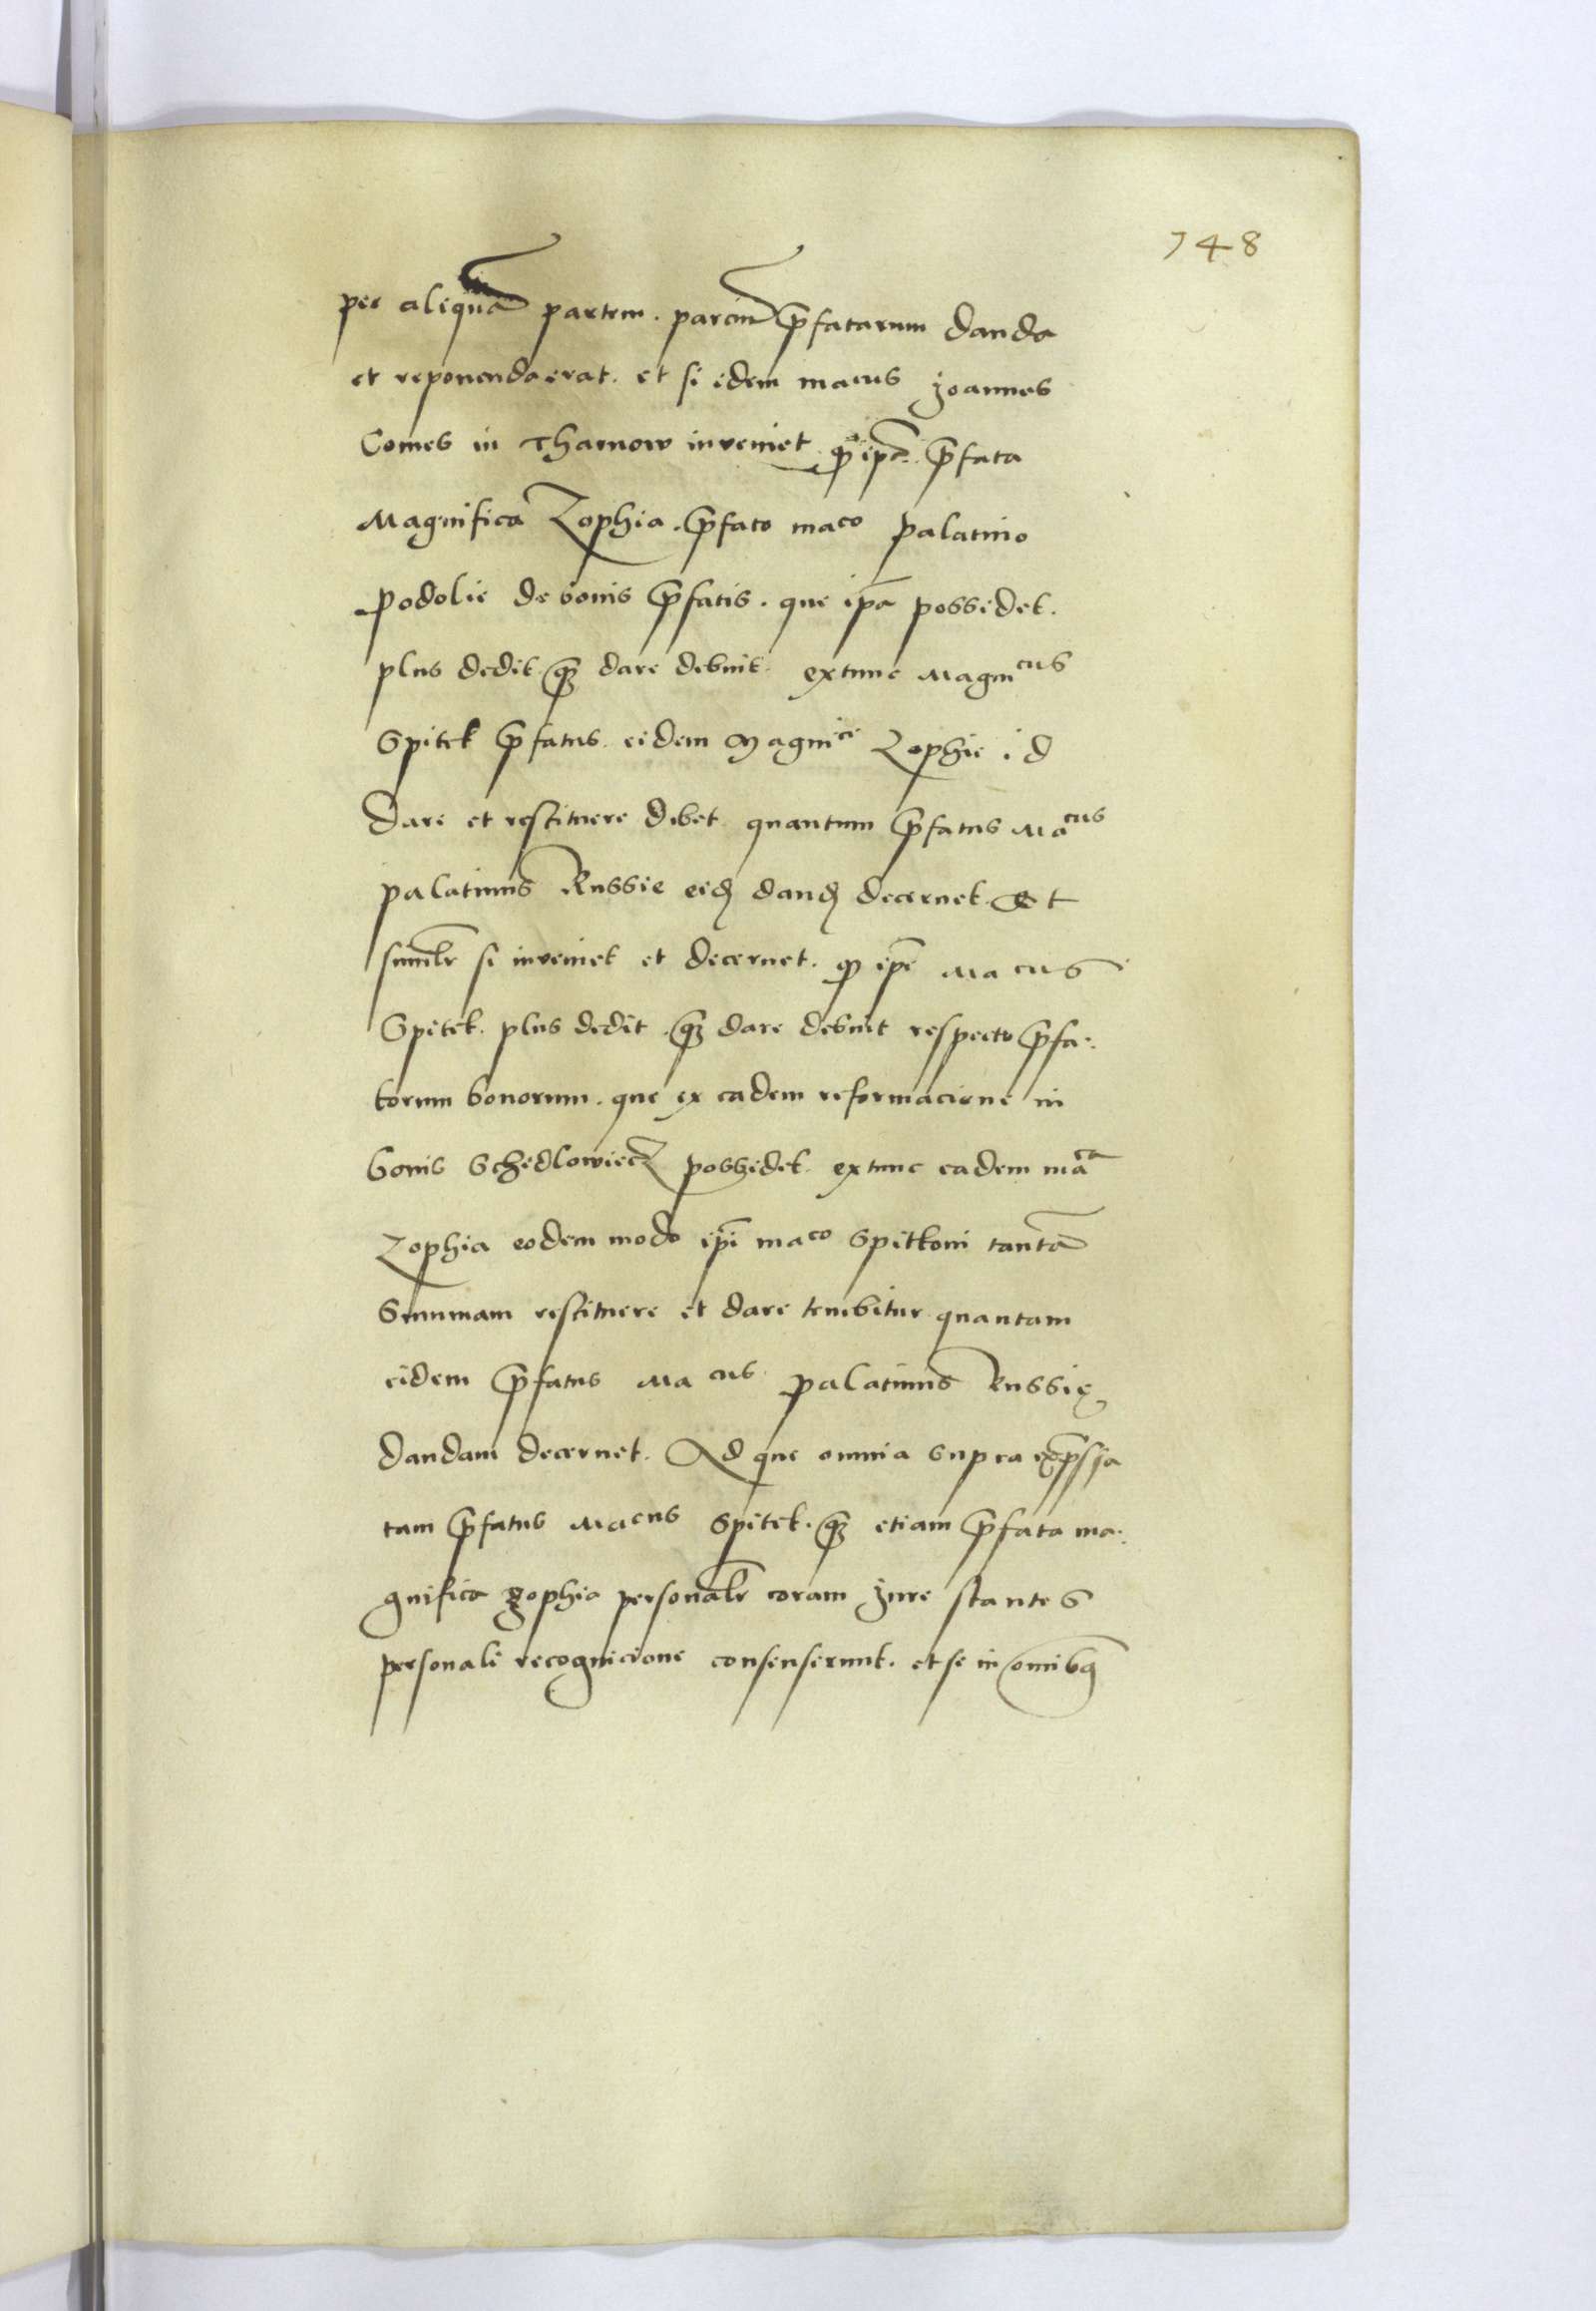 748
per aliquā partem. parciū p̄fatarum danda
et reponenda erat. et si idem macus Joannes
Comes in Tharnow inveniet ꝙ ipā p̄fata
Magnifica Zophia. p̄fato maco palatino
podolie de bonis p̄fatis. que ipā possidet.
plus dedit qȝ dare debuit. extunc Magnicus
Spitek p̄fatus. eidem Magnice Zophie id
dare et restituere debet quantum p̄fatus Macus
palatinus Russie eidꝫ dandꝫ decernet. Et
similr si inveniet et decernet. ꝙ ipē Macus
Spitek. plus dedit. qȝ dare debuit respecto p̄fa:
torum bonorum. que ex eadem reformacione in
bonis Schedlowiecz possidet. extunc eadem māca
Zophia eodem modo ipī maco Spitkoni tantā
Summam restituere et dare tenebitur quantam
eidem p̄fatus Macus palatinus Russie
dandam decernet. Ad que omnia supra exp̄ssa
tam p̄fatus Macus Spitek. qȝ etiam p̄fata ma:
gnifica Zophia personalr coram Jure stantes
personali recognicione consenserunt. et se in omībꝫ